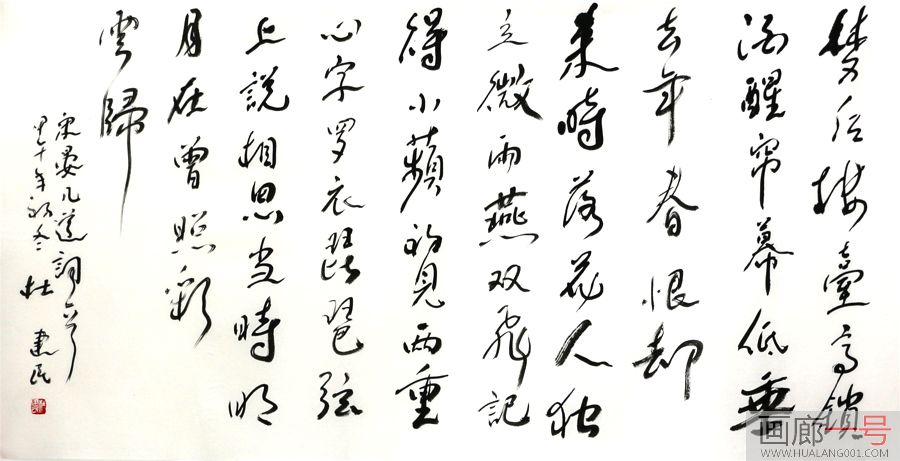 梦后楼臺高锁
酒醒帘幕低垂
去年春恨却
来時落花人独
立微雨燕双飛記
得小蘋初見两重
心字罗衣琵琶弦
上説相思当時明
月在曾照彩
雲歸
宋晏几道詞一首
甲午年初冬 杜建民
画廊一号
WWW.HUALANG001.COM